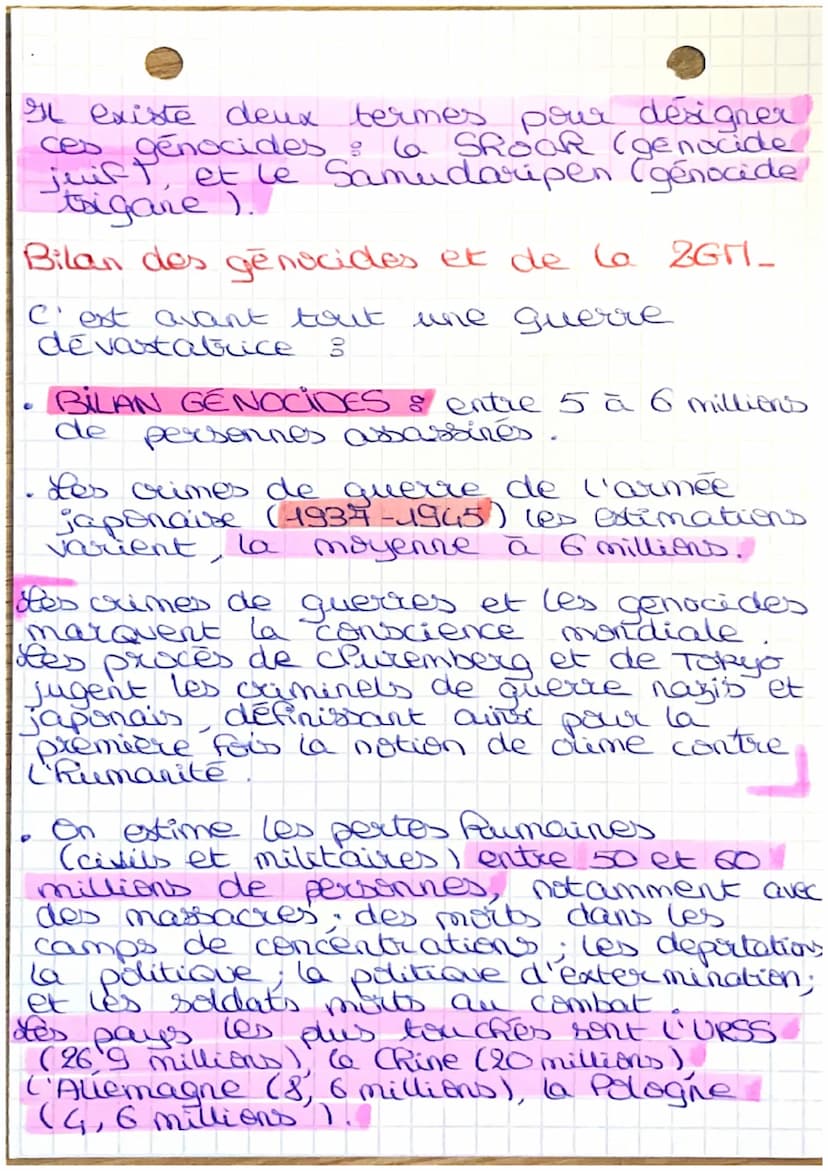 Il existe deux termes pour désigner
ces génocides : la SHOAH (génocide
juif), et le Samudaripen (génocide
tsigane).
Bilan des génocides et de la 2GM_
C'est avant tout une guerre
dévastatrice :
• BILAN GÉNOCIDES : entre 5 à 6 millions
de personnes assassinés.
• Les crimes de guerre de l'armée
japonaise (1937-1945) les estimations
varient, la moyenne à 6 millions.
Les crimes de guerres et les génocides
marquent la conscience mondiale.
Les procès de Nuremberg et de Tokyo
jugent les criminels de guerre nazis et
japonais, définissant ainsi pour la
première fois la notion de crime contre
l'humanité.
• On estime les pertes humaines
(civils et militaires) entre 50 et 60
millions de personnes, notamment avec
des massacres ; des morts dans les
camps de concentrations ; les déportations
la politique ; la politique d'extermination ;
et les soldats morts au combat.
Les pays les plus touchés sont l'URSS
(26,9 millions), la Chine (20 millions),
l'Allemagne (8,6 millions), la Pologne
(4,6 millions).